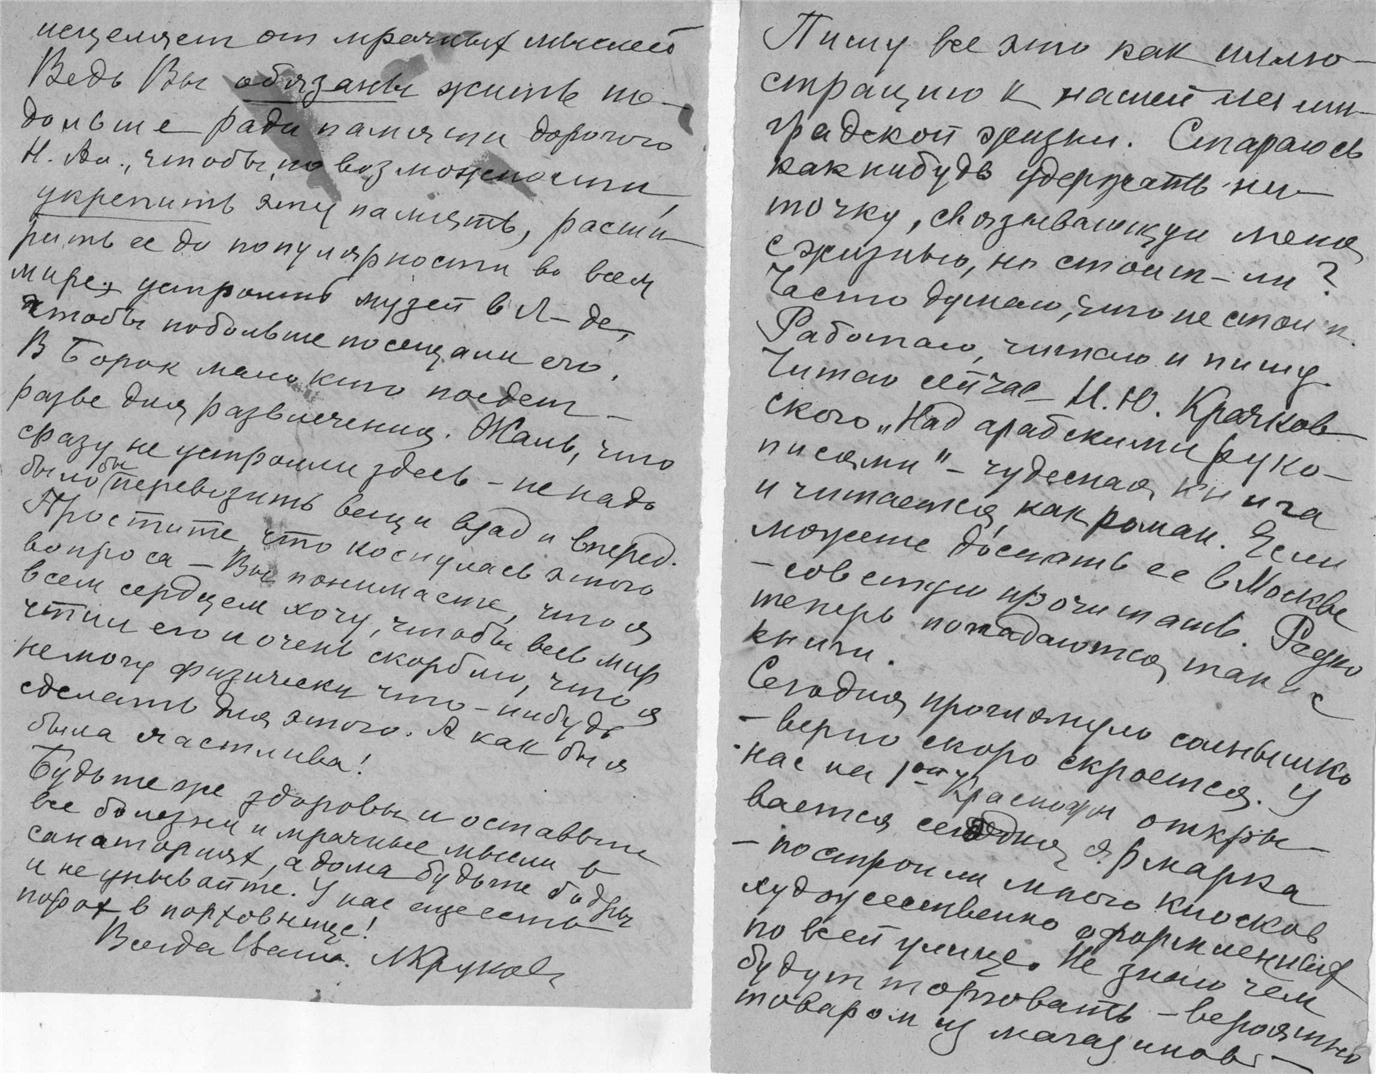 исцеляет от мрачных мыслей
Ведь Вы обязаны жить по-
дольше ради памяти дорогого
Н. Ал., чтобы по возможности
укрепить эту память, расши-
рить ее до популярности во всем
мире, устроить музей в Л-де,
чтобы побольше посещали его.
В Борок мало кто поедет –
разве для развлечения. Жаль, что
сразу не устроили здесь – не надо
было бы перевозить вещи взад и вперед.
Простите, что коснулась этого
вопроса – Вы понимаете, что я
всем сердцем хочу, чтобы весь мир
чтил его и очень скорблю, что я
не могу физически что-нибудь
сделать для этого. А как бы я
была счастлива!
Будьте же здоровы и оставьте
все болезни и мрачные мысли в
санаториях, а дома будьте бодры
и не унывайте. У нас еще есть
порох в пороховнице!
Всегда Ваша
Пишу все это как иллю-
страцию к нашей ленин-
градской жизни. Стараюсь
как нибудь удержать ни-
точку, связывающую меня
с жизнью, но стоит-ли?
Часто думаю, что не стоит.
Работаю, читаю и пишу.
Читаю сейчас И. Ю. Крачков-
ского „Над арабскими руко-
писями" – чудесная книга
и читается, как роман. Если
можете достать ее в Москве
– советую прочитать. Редко
теперь попадаются такие
книги.
Сегодня проглянуло солнышко
– верно скоро скроется. У
нас на 1ой Красноарм откры-
вается сегодня ярмарка
– построили много киосков
художественно оформленных
по всей улице. Не знаю чем
будут торговать – вероятно
товаром из магазинов –